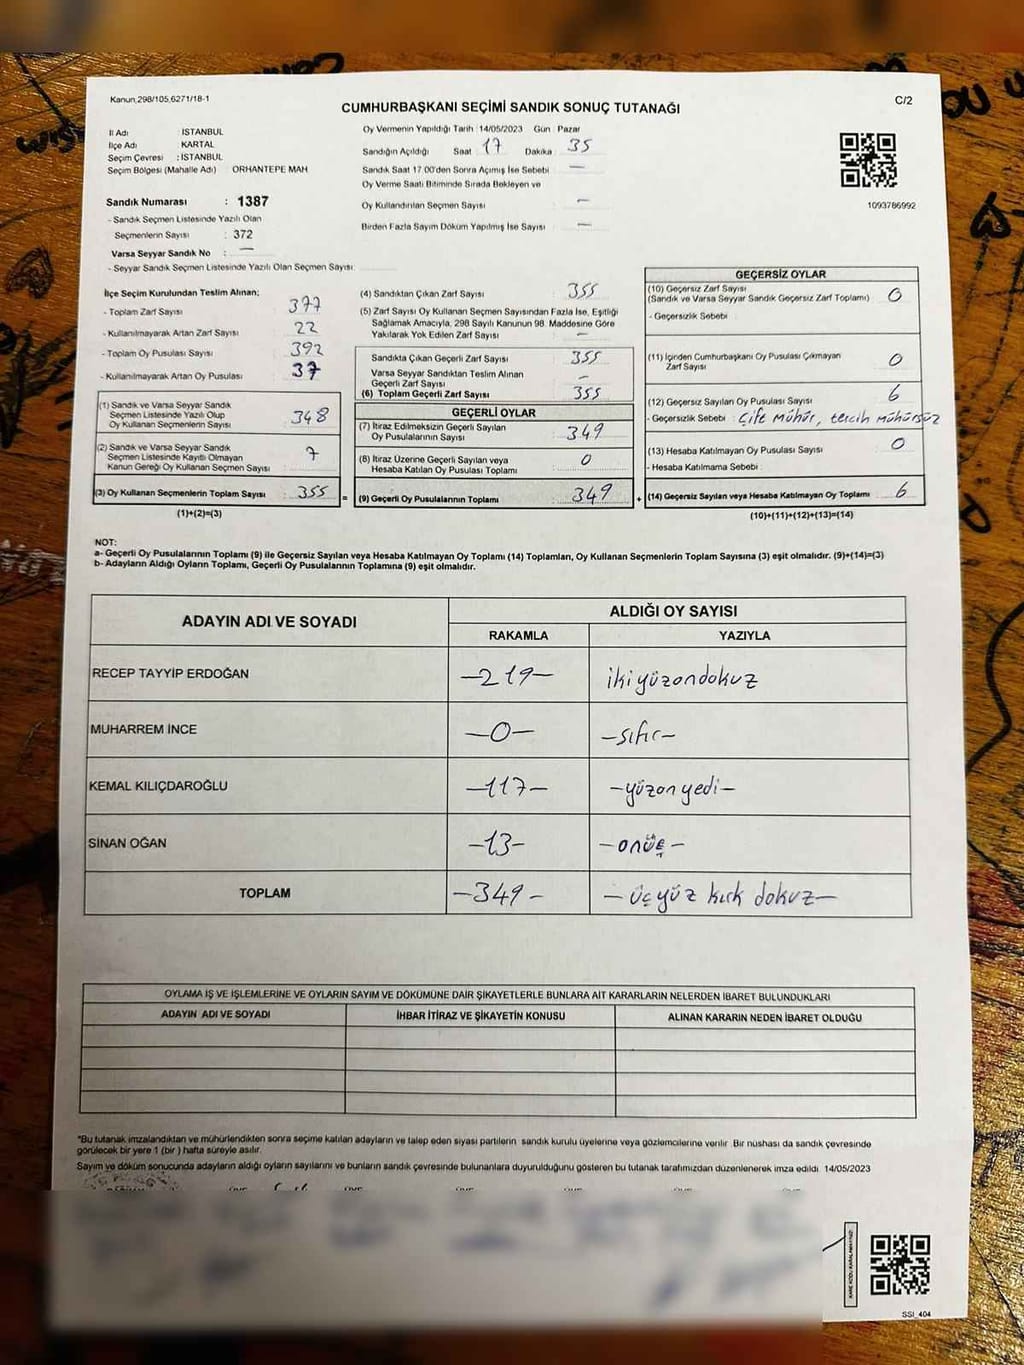 Kanun,298/105,6271/18-1
CUMHURBAŞKANI SEÇİMİ SANDIK SONUÇ TUTANAĞI
C/2
İl Adı : İSTANBUL
İlçe Adı KARTAL
Seçim Çevresi : İSTANBUL
Seçim Bölgesi (Mahalle Adı) ORHANTEPE MAH
Sandık Numarası : 1387
- Sandık Seçmen Listesinde Yazılı Olan
Seçmenlerin Sayısı : 372
Varsa Seyyar Sandık No : —
- Seyyar Sandık Seçmen Listesinde Yazılı Olan Seçmen Sayısı:
Oy Vermenin Yapıldığı Tarih :14/05/2023 Gün : Pazar
Sandığın Açıldığı Saat : 17 Dakika : 35
Sandık Saat 17.00'den Sonra Açımış İse Sebebi : —
Oy Verme Saati Bitiminde Sırada Bekleyen ve
Oy Kullandırılan Seçmen Sayısı : —
Birden Fazla Sayım Döküm Yapılmış İse Sayısı : —
1093786992
İlçe Seçim Kurulundan Teslim Alınan;
- Toplam Zarf Sayısı : 377
- Kullanılmayarak Artan Zarf Sayısı : 22
- Toplam Oy Pusulası Sayısı : 392
- Kullanılmayarak Artan Oy Pusulası : 37
(1) Sandık ve Varsa Seyyar Sandık
Seçmen Listesinde Yazılı Olup
Oy Kullanan Seçmenlerin Sayısı : 348
(2) Sandık ve Varsa Seyyar Sandık
Seçmen Listesinde Kayıtlı Olmayan
Kanun Gereği Oy Kullanan Seçmen Sayısı : 7
(3) Oy Kullanan Seçmenlerin Toplam Sayısı : 355
(1)+(2)=(3)
(4) Sandıktan Çıkan Zarf Sayısı : 355
(5) Zarf Sayısı Oy Kullanan Seçmen Sayısından Fazla İse, Eşitliği
Sağlamak Amacıyla, 298 Sayılı Kanunun 98. Maddesine Göre
Yakılarak Yok Edilen Zarf Sayısı : —
Sandıkta Çıkan Geçerli Zarf Sayısı : 355
Varsa Seyyar Sandıktan Teslim Alınan
Geçerli Zarf Sayısı : —
(6) Toplam Geçerli Zarf Sayısı : 355
GEÇERLİ OYLAR
(7) İtiraz Edilmeksizin Geçerli Sayılan
Oy Pusulalarının Sayısı : 349
(8) İtiraz Üzerine Geçerli Sayılan veya
Hesaba Katılan Oy Pusulası Toplamı : 0
= (9) Geçerli Oy Pusulalarının Toplamı : 349
GEÇERSİZ OYLAR
(10) Geçersiz Zarf Sayısı
(Sandık ve Varsa Seyyar Sandık Geçersiz Zarf Toplamı) : 0
- Geçersizlik Sebebi :
(11) İçinden Cumhurbaşkanı Oy Pusulası Çıkmayan
Zarf Sayısı : 0
(12) Geçersiz Sayılan Oy Pusulası Sayısı : 6
- Geçersizlik Sebebi : Çift mühür, tercih mühürsüz
(13) Hesaba Katılmayan Oy Pusulası Sayısı : 0
- Hesaba Katılmama Sebebi :
+ (14) Geçersiz Sayılan veya Hesaba Katılmayan Oy Toplamı : 6
(10)+(11)+(12)+(13)=(14)
NOT:
a- Geçerli Oy Pusulalarının Toplamı (9) ile Geçersiz Sayılan veya Hesaba Katılmayan Oy Toplamı (14) Toplamları, Oy Kullanan Seçmenlerin Toplam Sayısına (3) eşit olmalıdır. (9)+(14)=(3)
b- Adayların Aldığı Oyların Toplamı, Geçerli Oy Pusulalarının Toplamına (9) eşit olmalıdır.
ADAYIN ADI VE SOYADI ALDIĞI OY SAYISI
RAKAMLA YAZIYLA
RECEP TAYYİP ERDOĞAN —219— ikiyüzondokuz
MUHARREM İNCE —0— —sıfır—
KEMAL KILIÇDAROĞLU —117— —yüzonyedi—
SİNAN OĞAN —13— —onüç—
TOPLAM —349— —üçyüz kırk dokuz—
OYLAMA İŞ VE İŞLEMLERİNE VE OYLARIN SAYIM VE DÖKÜMÜNE DAİR ŞİKAYETLERLE BUNLARA AİT KARARLARIN NELERDEN İBARET BULUNDUKLARI
ADAYIN ADI VE SOYADI İHBAR İTİRAZ VE ŞİKAYETİN KONUSU ALINAN KARARIN NEDEN İBARET OLDUĞU
*Bu tutanak imzalandıktan ve mühürlendikten sonra seçime katılan adayların ve talep eden siyasi partilerin sandık kurulu üyelerine veya gözlemcilerine verilir. Bir nüshası da sandık çevresinde
görülecek bir yere 1 (bir ) hafta süreyle asılır.
Sayım ve döküm sonucunda adayların aldığı oyların sayılarını ve bunların sandık çevresinde bulunanlara duyurulduğunu gösteren bu tutanak tarafımızdan düzenlenerek imza edildi. 14/05/2023
SSİ_404